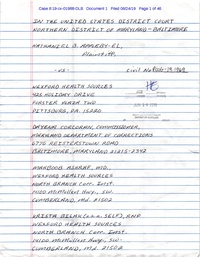 Case 8:19-cv-01866-DLB Document 1 Filed 06/24/19 Page 1 of 46
IN THE UNITED STATES DISTRICT COURT
NORTHERN DISTRICT OF MARYLAND - BALTIMORE
NATHANIEL B. APPLEBY-EL,
Plaintiff,
-vs- Civil No.
WEXFORD HEALTH SOURCES
425 HOLIDAY DRIVE
FOSTER PLAZA TWO
PITTSBURG, PA. 15220
DAYENA CORCORAN, COMMISSIONER,
MARYLAND DEPARTMENT OF CORRECTIONS
6776 REISTERSTOWN ROAD
BALTIMORE, MARYLAND 21215-2342
MAHBOOB ASHRAF, MD.,
WEXFORD HEALTH SOURCES
NORTH BRANCH Corr. Inst.
14100 McMullen Hwy., SW.
CUMBERLAND, MD. 21502
KRISTA BILAK (c.o.a. SELF), AND
WEXFORD HEALTH SOURCES
NORTH BRANCH Corr. Inst.
14100 McMullen Hwy., SW.
CUMBERLAND, Md. 21502